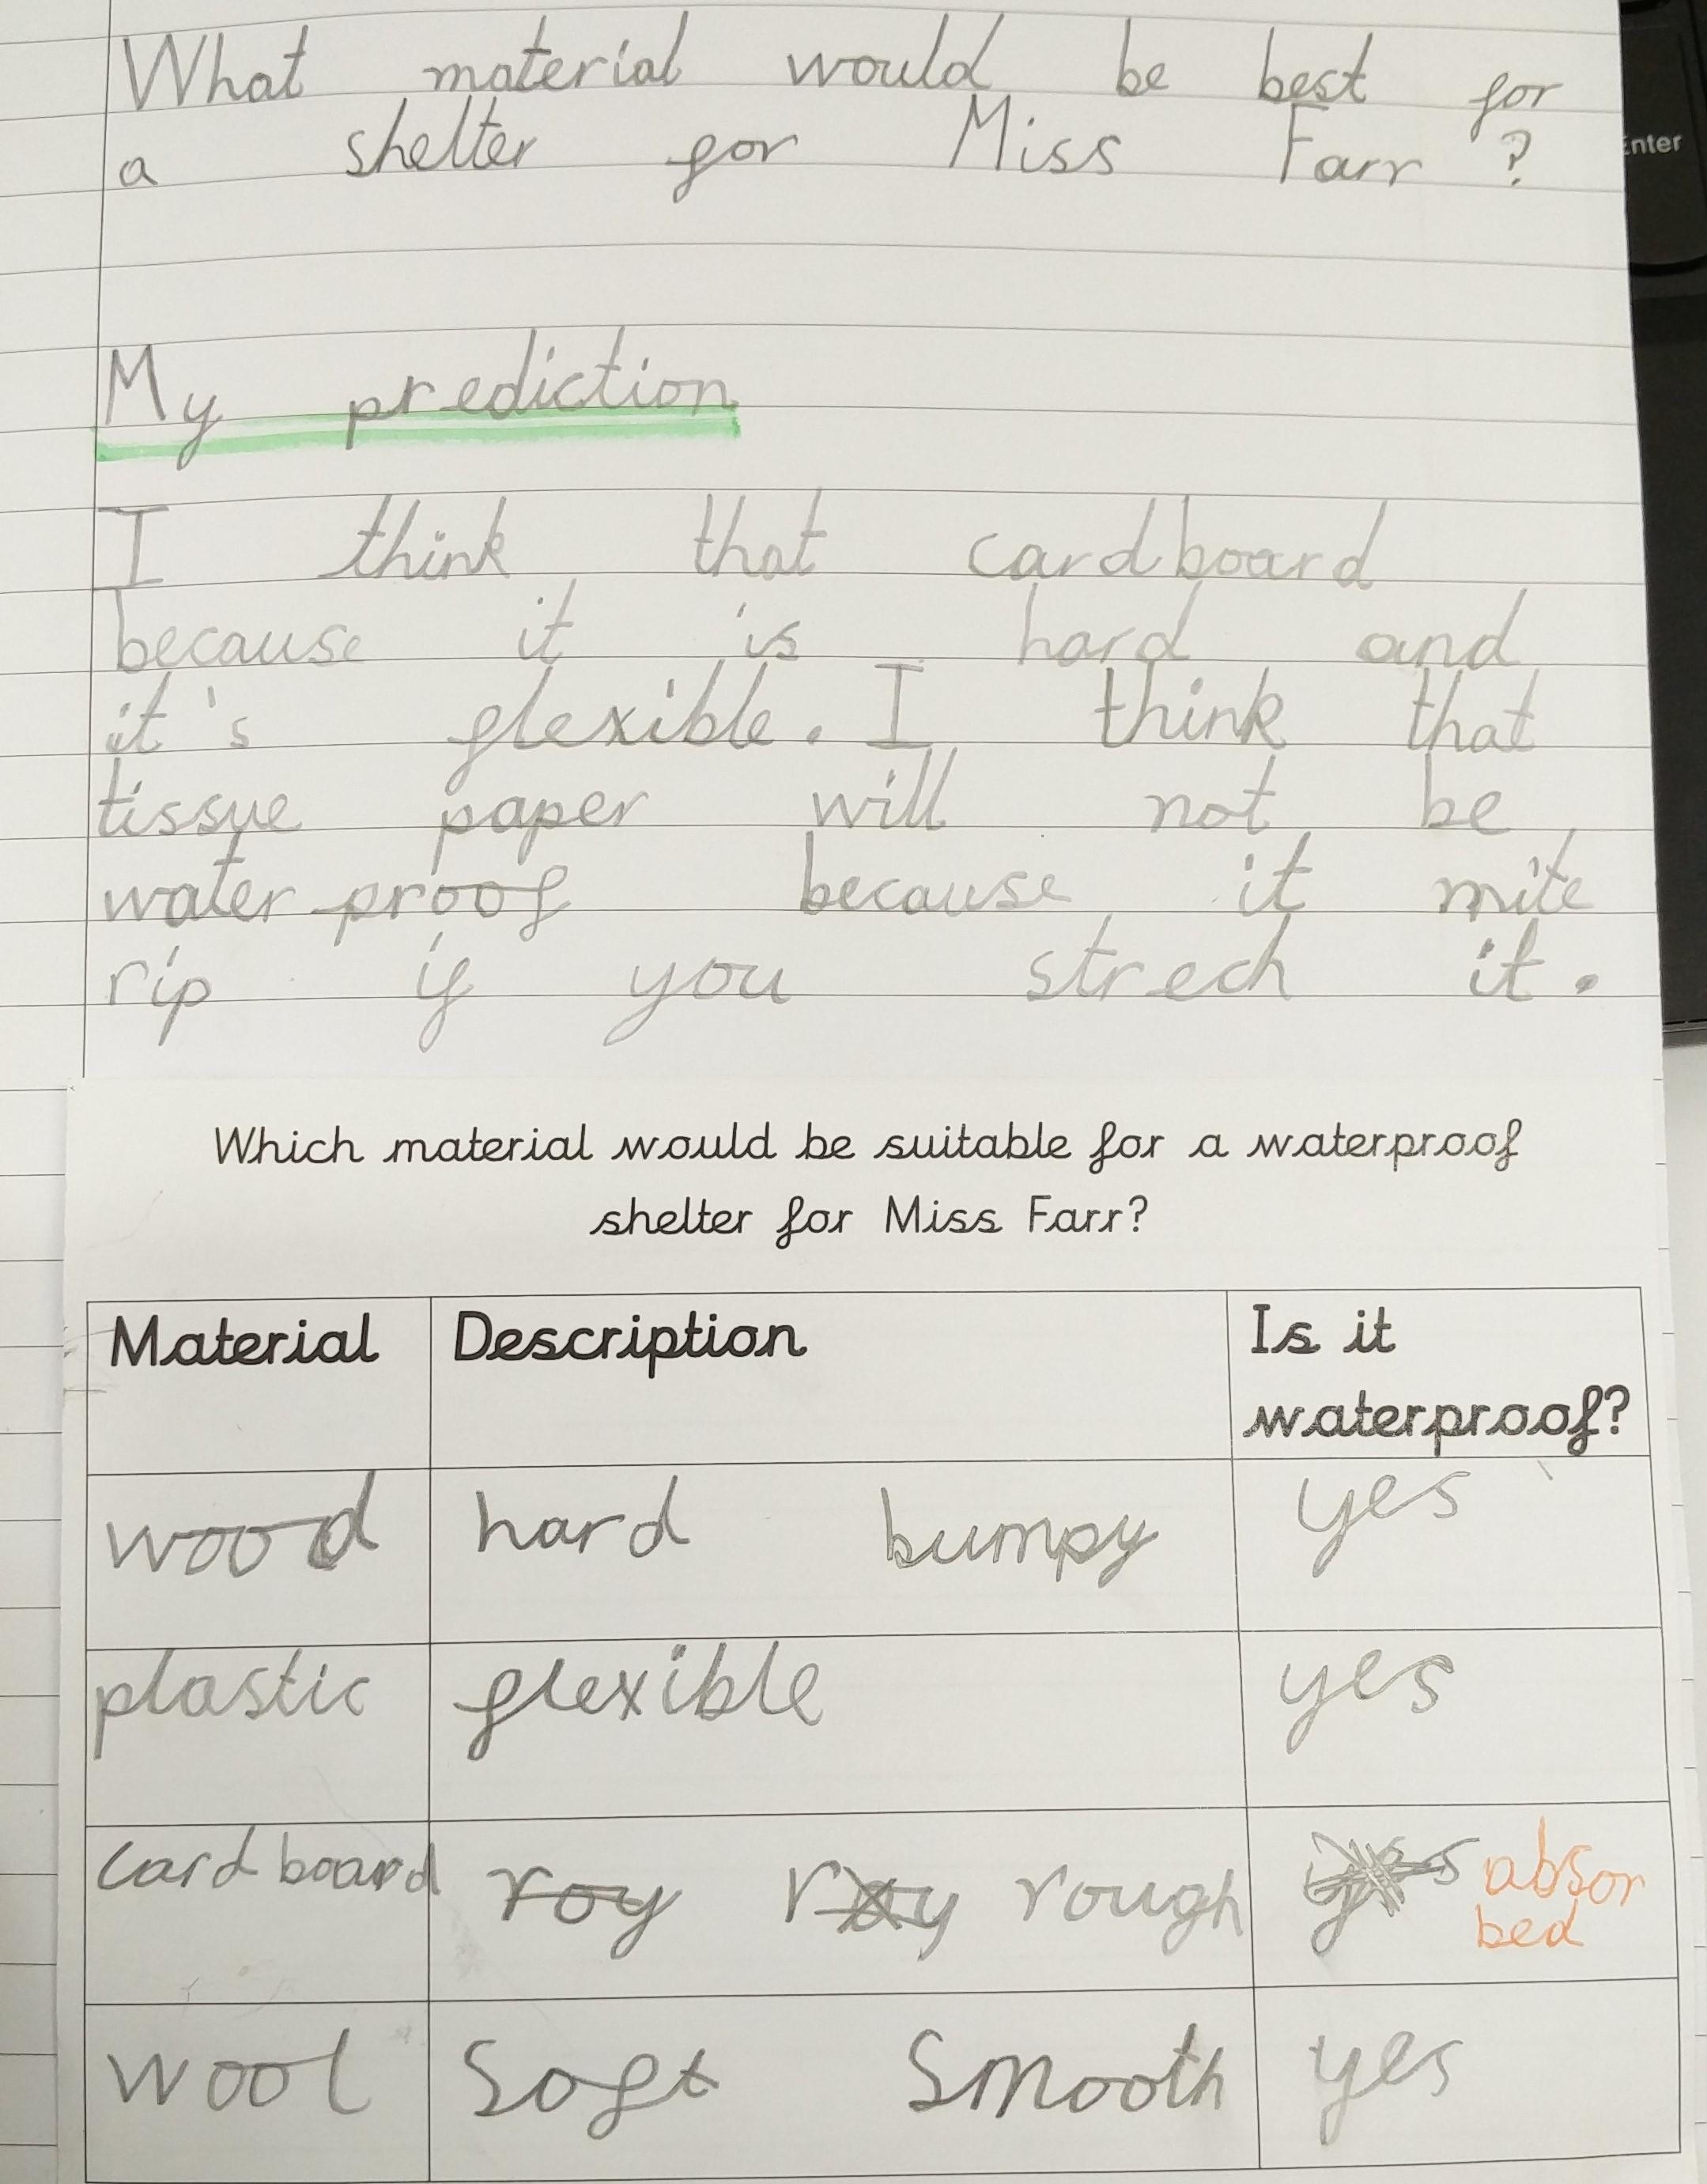 What material would be best for
a shelter for Miss Farr?
Enter
My prediction
I think that cardboard
because it is hard and
it's flexible. I think that
tissue paper will not be
waterproof because it mite
rip if you strech it.
Which material would be suitable for a waterproof
shelter for Miss Farr?
Material Description Is it
waterproof?
wood hard bumpy yes
plastic flexible yes
cardboard roy roy rough yes absor
bed
wool Soft Smooth yes